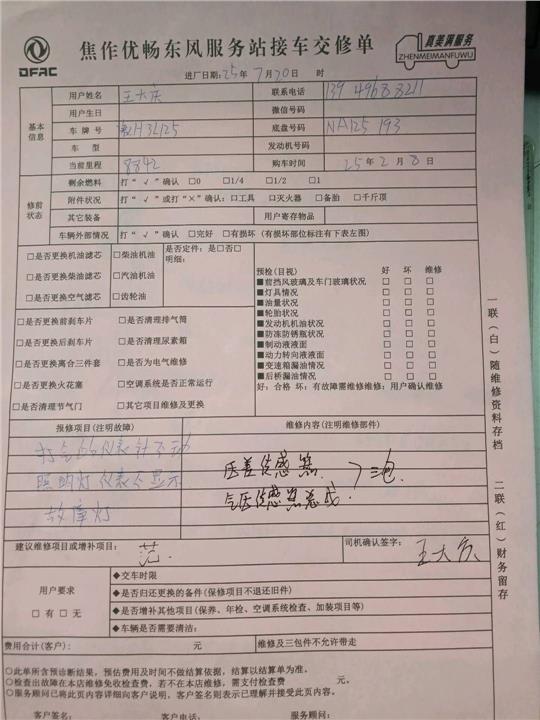 DFAC
焦作优畅东风服务站接车交修单
真美满服务
ZHENMEIMANFUWU
进厂日期：25年7月30日 时
基本信息
用户姓名 王大庆 联系电话 139 4968 8211
用户生日 微信号码
车牌号 豫H3L125 底盘号码 NA125193
车型 发动机号码
当前里程 8842 购车时间 25年2月8日
修前状态
剩余燃料 打“√”确认 □0 □1/4 □1/2 □1
附件状况 打“√”或打“×”确认：□工具 □灭火器 □备胎 □千斤顶
其它装备 用户寄存物品
车辆外部情况 打“√”确认 □完好 □有损坏（有损坏部位标注有下表左图）
□是否更换机油滤芯 □柴油机油 是否定件：是□否□
□是否更换柴油滤芯 □汽油机油 明细：
□是否更换空气滤芯 □齿轮油
□是否更换前刹车片 □是否清理排气筒
□是否更换后刹车片 □是否清理尿素箱
□是否更换离合三件套 □是否为电气维修
□是否更换火花塞 □空调系统是否正常运行
□是否清理节气门 □其它项目维修及更换
预检（目视） 好 坏 维修
■前挡风玻璃及车门玻璃状况 □ □ □
■灯具情况 □ □ □
■油量状况 □ □ □
■轮胎状况 □ □ □
■发动机机油状况 □ □ □
■防冻防锈瓶状况 □ □ □
■制动液液面 □ □ □
■动力转向液液面 □ □ □
■变速箱漏油情况 □ □ □
■后桥漏油情况 □ □ □
好：合格 坏：有故障需维修维修：用户确认维修
报修项目（注明故障） 维修内容（注明维修部件）
打气的仪表针不动
照明灯仪表不显示
故障灯
压差传感器
气压传感器总成
三包
建议维修项目或增补项目： 范 司机确认签字： 王大庆
用户要求
□有 □无
◆交车时限
◆是否归还更换的备件（保修项目不退还旧件）
◆是否增补其他项目（保养、年检、空调系统检查、加装项目等）
◆车辆是否需要清洁：
费用合计（客户）： 元 维修及三包件不允许带走
○此单所含预诊断结果，预估费用及时间不做结算依据，结算以结算单为准。
○检查出故障在本店维修免收检查费，若不在本店维修，需支付检查费 元。
○服务顾问已将此页内容详细向客户说明，客户签名则表示已理解并接受此页内容。
客户签名： 客户电话： 服务顾问：
一联（白）随维修资料存档
二联（红）财务留存